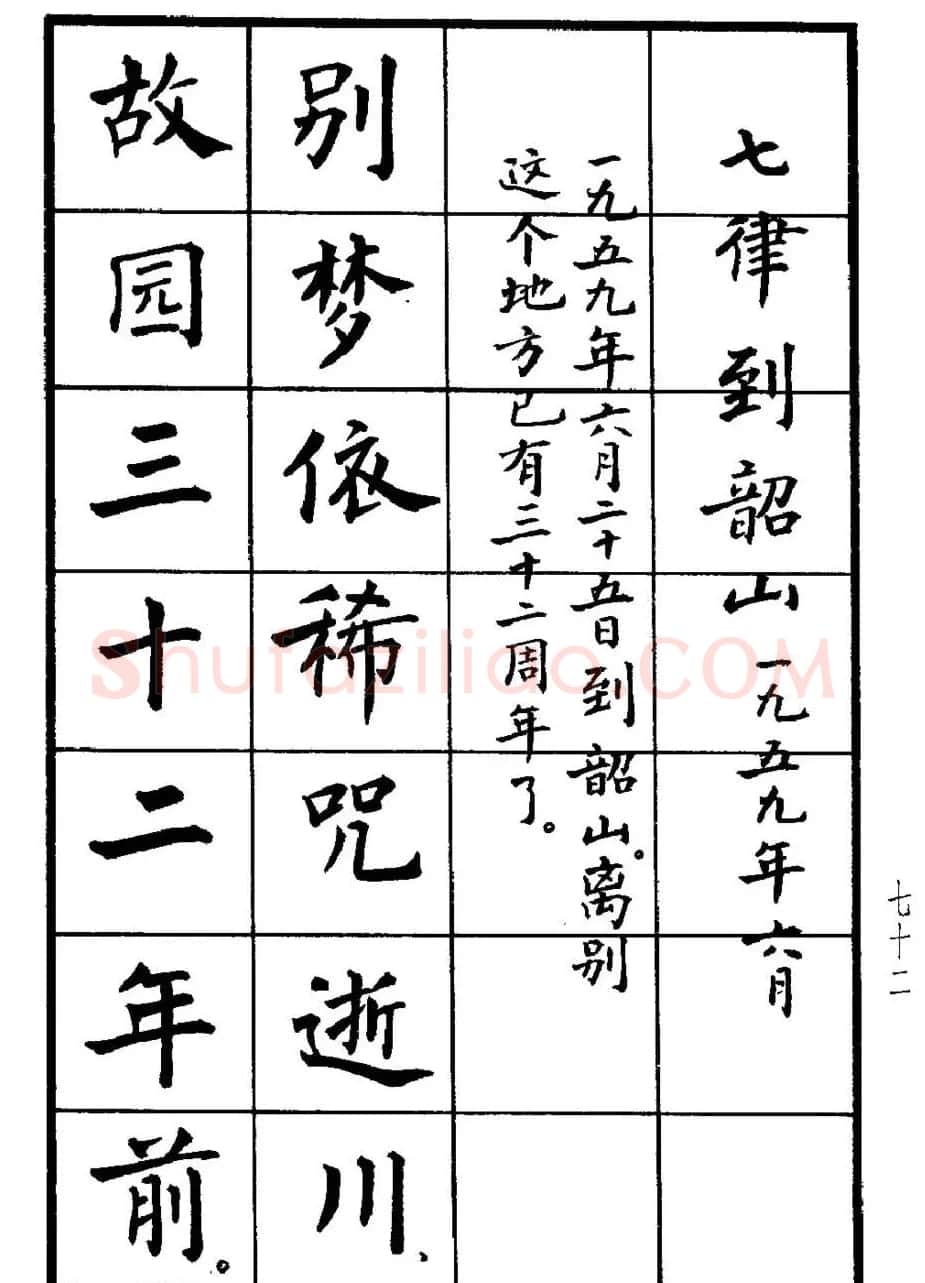 七律到韶山 一九五九年六月
一九五九年六月二十五日到韶山。离别
这个地方已有三十二周年了。
别梦依稀咒逝川、
故园三十二年前。
七十二
Shufaziliao.COM